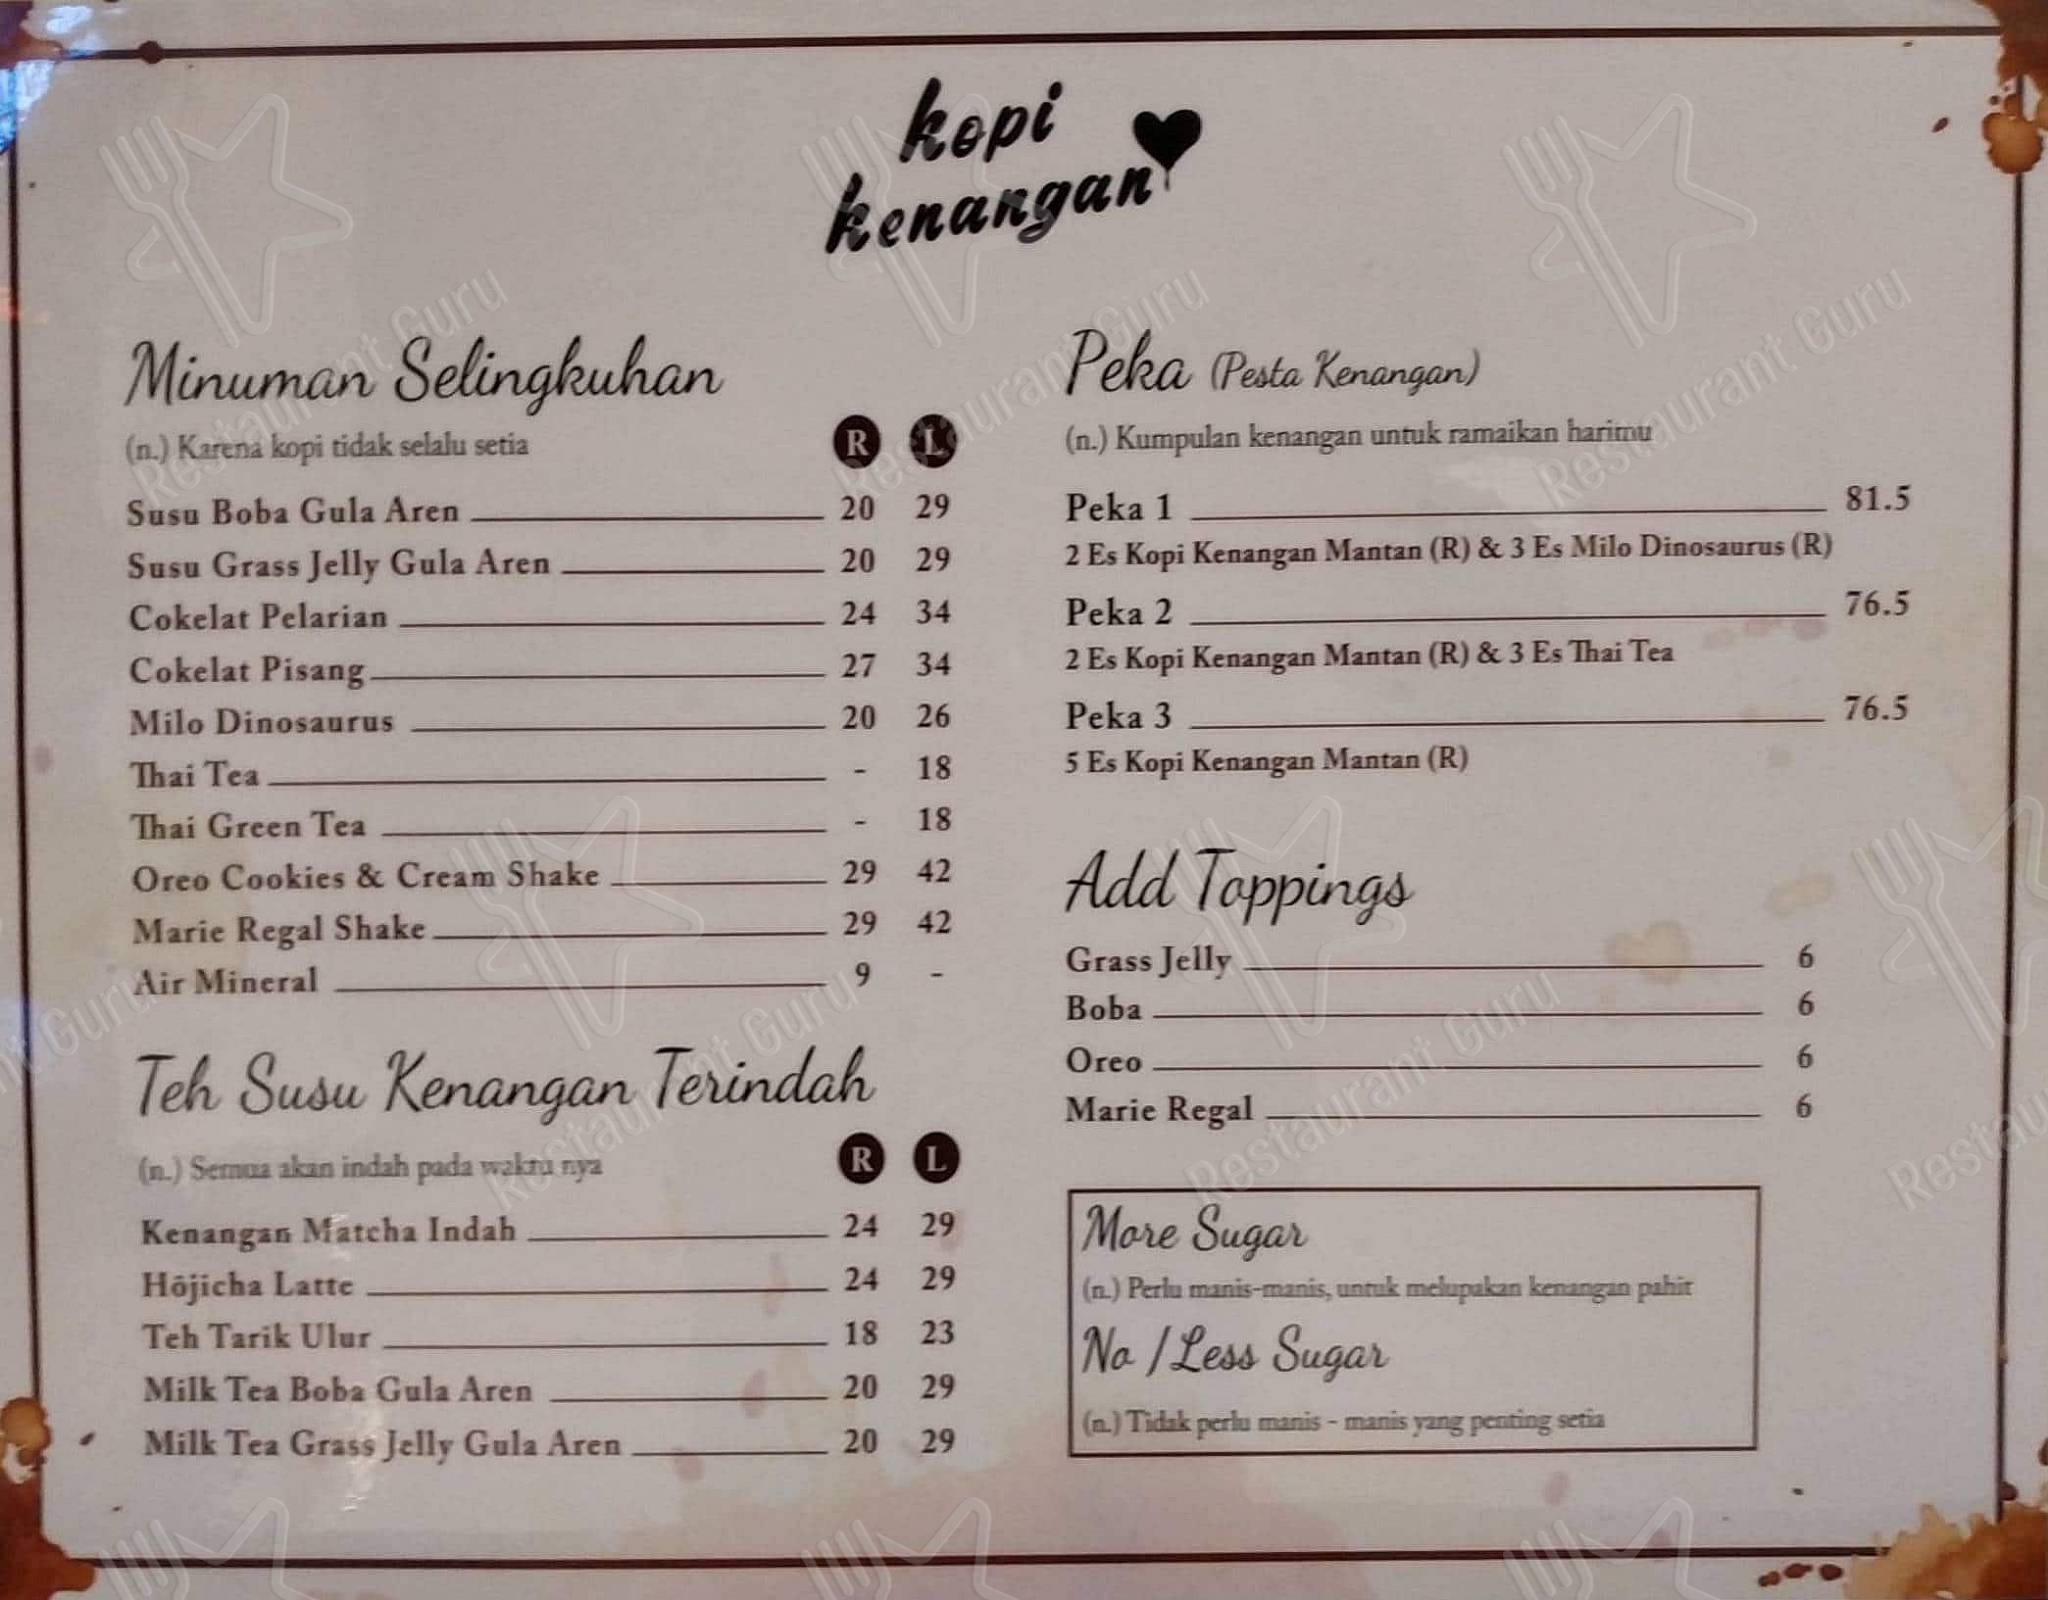 kopi
kenangan
Minuman Selingkuhan
(n.) Karena kopi tidak selalu setia R L
Susu Boba Gula Aren 20 29
Susu Grass Jelly Gula Aren 20 29
Cokelat Pelarian 24 34
Cokelat Pisang 27 34
Milo Dinosaurus 20 26
Thai Tea - 18
Thai Green Tea - 18
Oreo Cookies & Cream Shake 29 42
Marie Regal Shake 29 42
Air Mineral 9 -
Teh Susu Kenangan Terindah
(n.) Semua akan indah pada waktu nya R L
Kenangan Matcha Indah 24 29
Hōjicha Latte 24 29
Teh Tarik Ulur 18 23
Milk Tea Boba Gula Aren 20 29
Milk Tea Grass Jelly Gula Aren 20 29
Peka (Pesta Kenangan)
(n.) Kumpulan kenangan untuk ramaikan harimu
Peka 1 81.5
2 Es Kopi Kenangan Mantan (R) & 3 Es Milo Dinosaurus (R)
Peka 2 76.5
2 Es Kopi Kenangan Mantan (R) & 3 Es Thai Tea
Peka 3 76.5
5 Es Kopi Kenangan Mantan (R)
Add Toppings
Grass Jelly 6
Boba 6
Oreo 6
Marie Regal 6
More Sugar
(n.) Perlu manis-manis, untuk melupakan kenangan pahit
No / Less Sugar
(n.) Tidak perlu manis - manis yang penting setia
Restaurant Guru
Restaurant Guru
Restaurant Guru
Restaurant Guru
Restaurant Guru